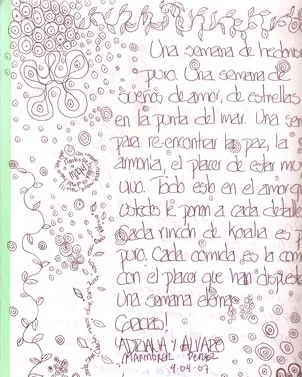 Una semana de hedonis
puro. Una semana de
sueños de amor, de estrellas
en la punta del mar. Una sem
para re-encontrar la paz, la
armonía, el placer de estar mu
uno. Todo esto en el amor q
ustedes le ponen a cada detalle
Cada rincón de Koralia es
puro. Cada comida es la com
con el placer que han dispues
Una semana
Gracias!
Y ALVARO
9-04-07